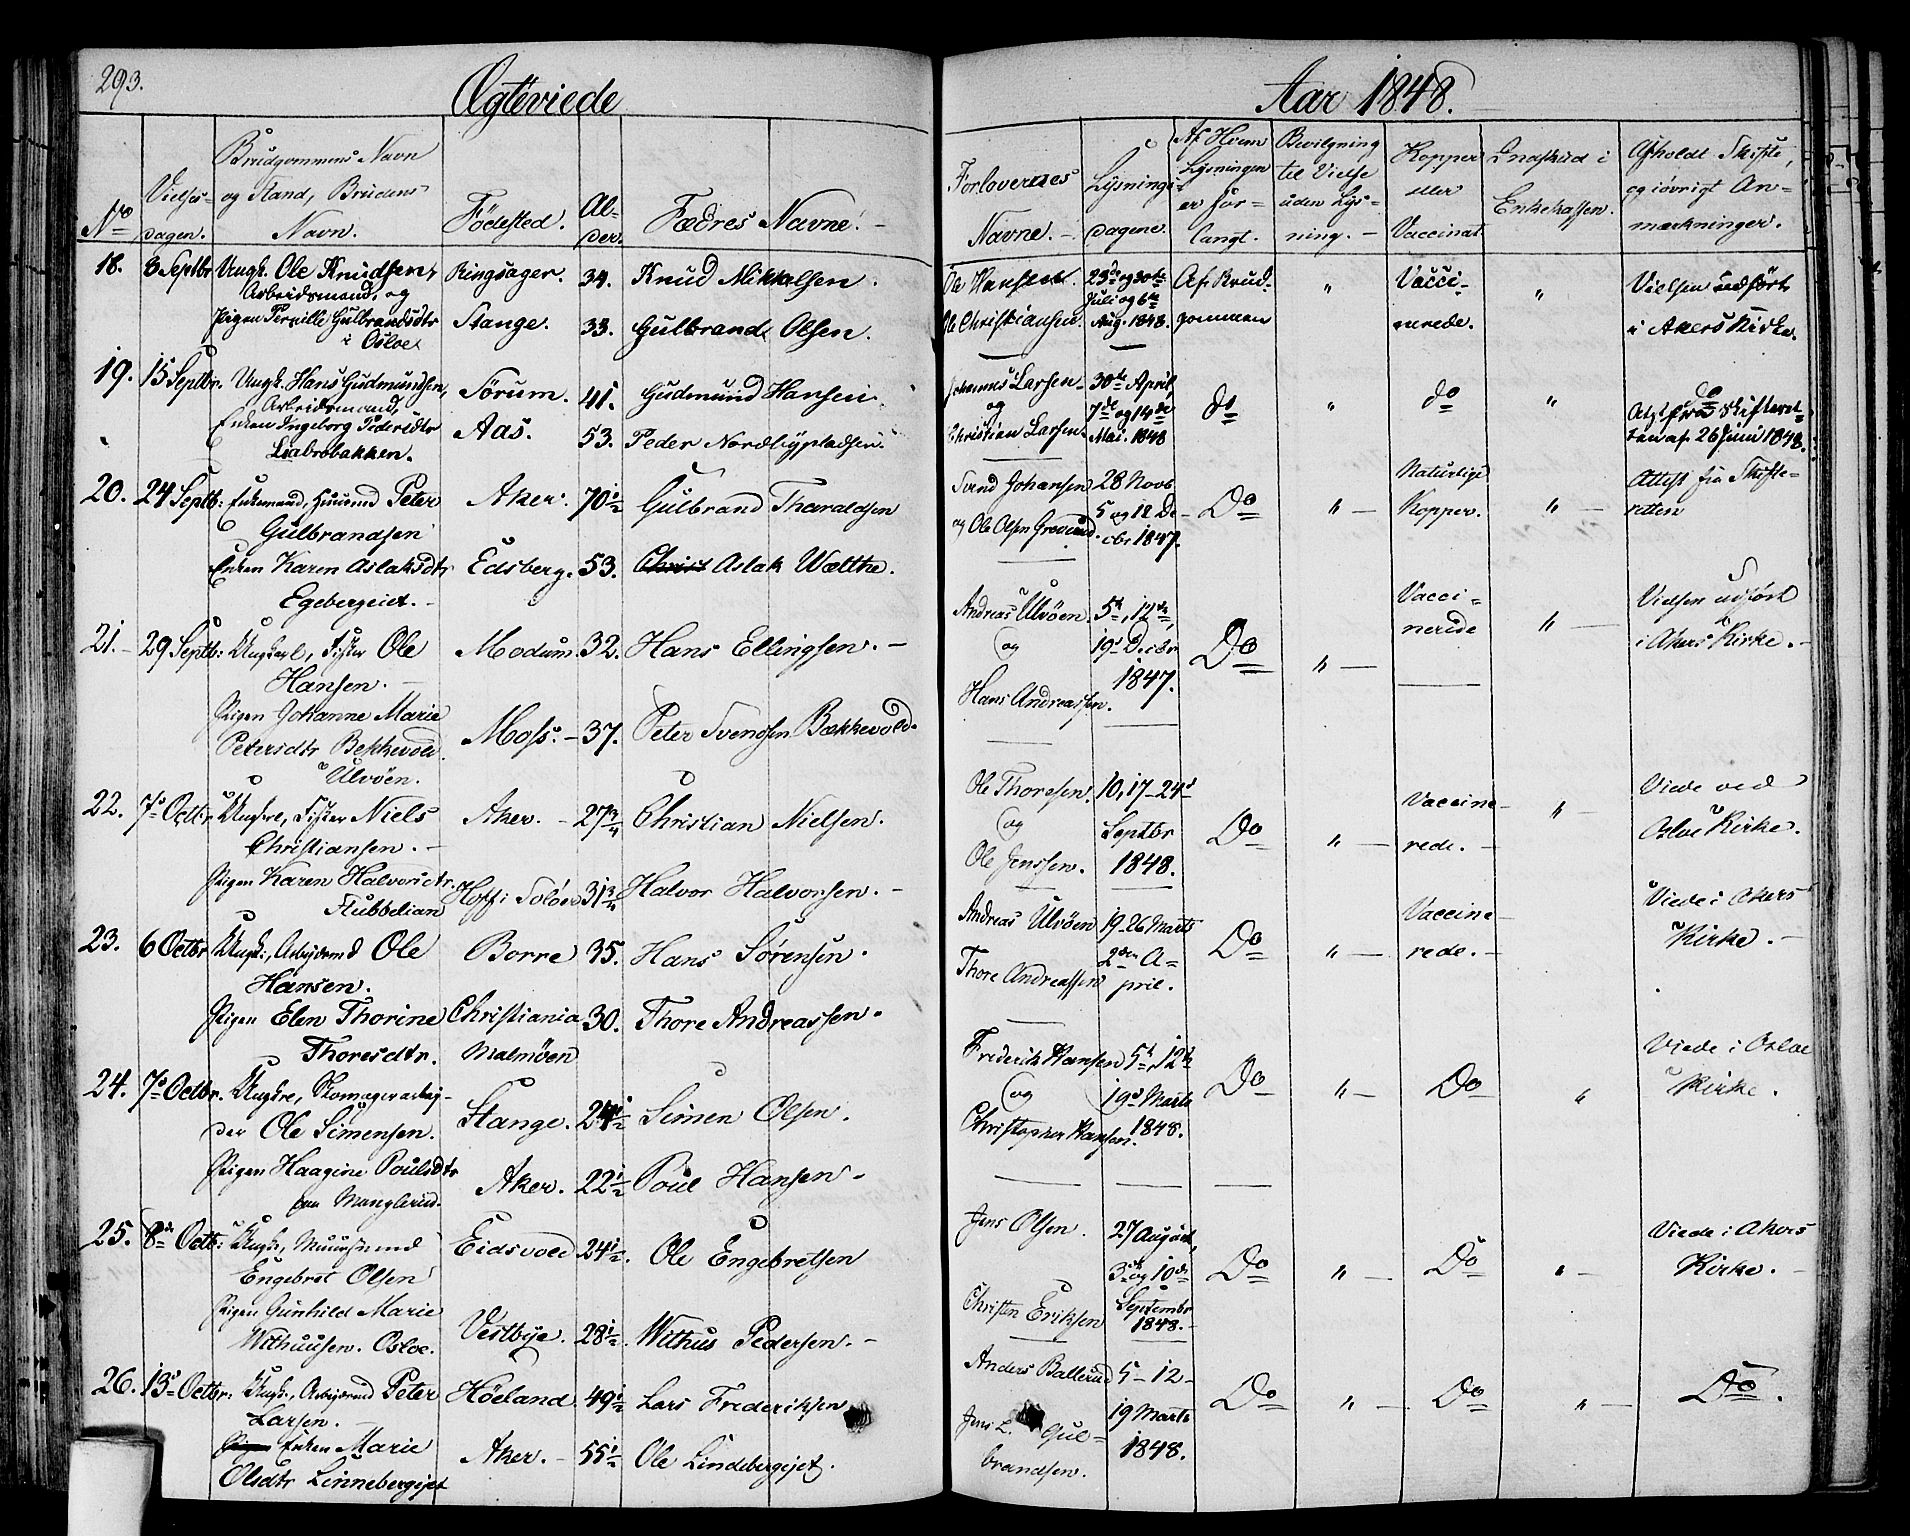 293.
Ægteviede
Aar 1848.
No
Vielses-
dagen.
Brudgommens Navn
og Stand, Brudens
Navn.
Födested.
Al-
der.
Fædres Navne.
Forlovernes
Navne. -
Lysnings-
dagene.
Af Hvem
Lysningen
er for-
langt.
Bevilgning
til Vielse
uden Lys-
ning. -
Kopper
eller
Vaccinat.
Indskud i
Enkekassen.
Afholdt Skifte,
og iøvrigt An-
mærkninger.
18. 8 Septbr Ungk. Ole Knudsen, Ringsager. 34. Knud Mikkelsen.
Arbeidsmand, og
Pigen Pernille Gulbrandsdtr Stange. 33. Gulbrand Olsen.
i Osloe
Ole Hansen. 23de og 30te Af Brud- " Vacci- " Vielsen udført
Juli og 6te
Ole Christiansen. Aug. 1848. gommen nerede. i Akers Kirke.
19. 15 Septbr. Ungk. Hans Gudmundsen, Sörum. 41. Gudmund Hansen.
Arbeidsmand,
Enken Ingeborg Pedersdtr Aas. 53. Peder Nordbypladsen.
Liabrobakken.
Johannes Larsen 30te April, do " do " do
og 7de og 14de Attst fra Skifteret-
Christian Larsen. Mai. 1848 ten af 26 Juni 1848.
20. 24 Septb: Enkemand, Huusmd Peter Aker. 70½ Gulbrand Tharaldsen
Gulbrandsen
Enken Karen Aslaksdtr Edsberg. 53. Aslak Wælthe.
Egebergeiet. -
Svend Johansen 28 Novb Do " - Naturlige " - Attest fra Skifte-
og Ole Olsen 5 og 12 De- Kopper. retten
cbr 1847.
21. - 29 Septb: Ungkarl, Fisker Ole Modum. 32. Hans Ellingsen. -
Hansen. -
Pigen Johanne Marie
Petersdtr Bekkevold Moss. - 37. Peter Svendsen Bækkevold.
Ulvöen.
Andreas Ulvöen. 5te, 12te, Do " - Vacci- " - Vielsen udført
og 19de Decbr nerede i Akers Kirke. -
1847.
Hans Andreassen.
22. 7de Octbr Ungkre, Fisker Niels Aker. - 27¾ Christian Nielsen.
Christiansen. -
Pigen Karen Halvorsdtr. Hoff i Solöer 31¾ Halvor Halvorsen. -
Stubbelian
Ole Thoresen. 10, 17 - 24de Do " - Vaccine- " - Viede ved
og Septbr rede. - Osloe Kirke.
Ole Jenssen. 1848.
23. 6 Octbr Ungk:, Arbeidsmd Ole Borre 35. Hans Sørensen.
Hansen.
Pigen Elen Thorine Christiania 30. Thore Andreassen.
Thoresdtr. Malmöen
Andreas Ulvöen 19 - 26 Marts Do " - Vaccine- Viede i Akers
2den A- rede. - Kirke. -
Thore Andreassen pril.
24. 7de Octbr. Ungkre, Skomagerarbei-
der Ole Simensen. Stange. 24½ Simen Olsen.
Pigen Haagine Poulsdtr Aker. 22½ Poul Hansen -
paa Manglerud.
Frederik Hansen 5te, 12te Do " - Do " Viede i Osloe
og 19de Marts Kirke.
Christopher Hansen. 1848.
25. 8de Octb: Ungkr, Muursvend Eidsvold 24½ Ole Engebretsen
Engebret Olsen
Pigen Gunhild Marie
Withuusen. Osloe. Vestbye. 28½ Withus Pedersen. -
Jens Olsen. 27 August, Do " - Do " - Viede i Akers
3die og 10de Kirke. -
Christen Eriksen Septembr
1848. -
26. 13de Octbr: Ungk:, Arbeidsmd Peter Höeland 49½ Lars Frederiksen
Larsen. -
Enken Marie Aker. - 55½ Ole Lindebergejet.
Olsdtr Linnebergejet
Anders Ballerud 5 - 12 - Do " - Do " - Do.
19 Marts
Jens L. Gul- 1848.
brandsen.